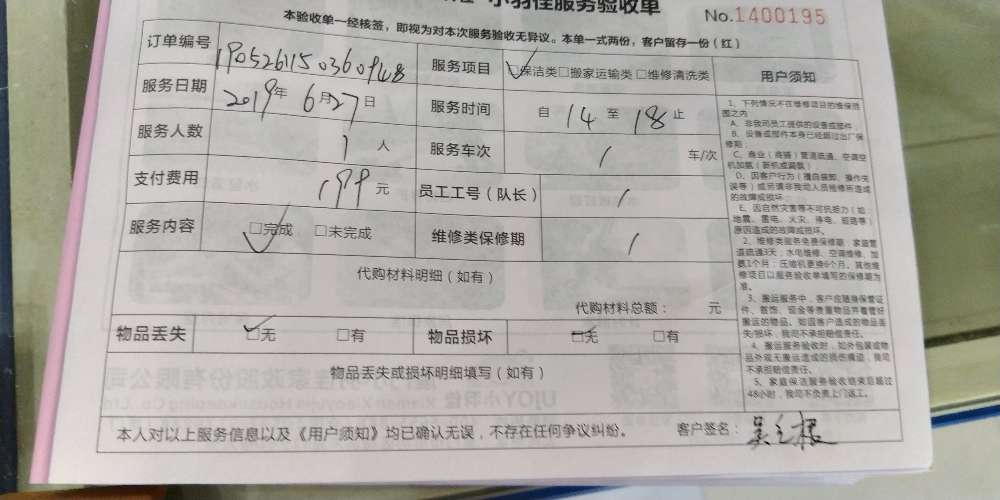 小羽佳服务验收单
No.1400195
本验收单一经核签，即视为对本次服务验收无异议。本单一式两份，客户留存一份（红）
订单编号 190526115036094B 服务项目 ☑保洁类□搬家运输类□维修清洗类
服务日期 2019年6月27日 服务时间 自 14 至 18 止
服务人数 1 人 服务车次 / 车/次
支付费用 199 元 员工工号（队长） /
服务内容 ☑完成 □未完成 维修类保修期 /
代购材料明细（如有）
代购材料总额： 元
物品丢失 ☑无 □有 物品损坏 ☑无 □有
物品丢失或损坏明细填写（如有）
本人对以上服务信息以及《用户须知》均已确认无误，不存在任何争议纠纷。 客户签名：
用户须知
1、下列情况不在维修项目的维保范
围之内
A、非我司员工提供的设备或部件
B、设备或部件本身已经超过出厂保
修期；
C、商业（商铺）管道疏通、空调空
机加氨（新机或漏氨）
D、因客户行为（擅自装卸、操作失
误等）或另请非我司人员维修所造成
的故障或损坏；
E、因自然灾害等不可抗拒力（如：
地震、雷电、火灾、停电、短路等）
原因造成的故障或损坏。
2、维修类服务免费保修期：家庭管
道疏通3天，水电维修、空调维修、加
氨1个月；压缩机更换6个月。其他维
修项目以服务验收单填写的保修期为
准。
3、搬运服务中，客户应随身保管证
件、首饰、现金等贵重物品并看管好
搬运的物品。如因客户造成的物品丢
失/损坏，我司不承担赔偿责任。
4、搬运服务验收时，如外包装或物
品外观无搬运造成的损伤痕迹，我司
不承担赔偿责任。
5、家庭保洁服务验收结束后超过
48小时，我司不负责上门返工。